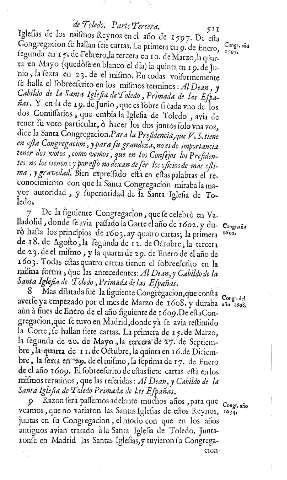 de Toledo. Parte Tercera. 511
Iglesias de los mismos Reynos en el año de 1597. De esta
Congregacion se hallan siete cartas. La primera en 9. de Enero,
segunda en 15. de Febrero, la tercera en 10. de Março, la quar-
ta en Mayo (quedóse en blanco el dia) la quinta en 19. de Ju-
nio, la sexta en 23. de el mismo. En todas vniformemente
se halla el sobreescrito en los mismos terminos: Al Dean, y
Cabildo de la Santa Iglesia de Toledo, Primada de las Espa-
ñas. Y en la de 19. de Junio, que es sobre si cada vno de los
dos Comissarios, que embia la Iglesia de Toledo, avia de
tener su voto particular, ò hazer los dos juntos solo vna voz,
dice la Santa Congregacion. Para la Presidencia, que V. S. tiene
en esta Congregacion, y para su grandeza, no es de importancia
tener dos votos, como vemos, que en los Consejos los Presiden-
tes no los tienen: y por esso no dexan de ser los oficios de mas esti-
ma, y gravedad. Bien expressado està en estas palabras el re-
conocimiento con que la Santa Congregacion miraba la ma-
yor autoridad, y superioridad de la Santa Iglesia de To-
ledo.
Congr. año
1597.
7 De la siguiente Congregacion, que se celebrò en Va-
lladolid, donde se avia passado la Corte el año de 1602. y du-
rò hasta los principios de 1603. ay quatro cartas; la primera
de 28. de Agosto, la segunda de 12. de Octubre, la tercera
de 23. de el mismo, y la quarta de 29. de Enero de el año de
1603. Todas estas quatro cartas tienen el sobreescrito en la
misma forma, que las antecedentes: Al Dean, y Cabildo de la
Santa Iglesia de Toledo, Primada de las Españas.
Congr. año
1602.
8 Mas dilatada fue la siguiente Congregacion, que consta
averse ya empezado por el mes de Março de 1608. y duraba
aun à fines de Enero de el año siguiente de 1609. De esta Con-
gregacion, que se tuvo en Madrid, donde ya se avia restituido
la Corte, se hallan siete cartas. La primera de 15. de Março,
la segunda de 20. de Mayo, la tercera de 27. de Septiem-
bre, la quarta de 11. de Octubre, la quinta en 16. de Diciem-
bre, la sexta en 29. de el mismo, la septima de 17. de Enero
de el año 1609. El sobreescrito de estas siete cartas està en los
mismos terminos, que las referidas: Al Dean, y Cabildo de la
Santa Iglesia de Toledo Primada de las Españas.
Congr. del
año 1608.
9 Razon serà passemos adelante muchos años, para que
veamos, que no variaron las Santas Iglesias de estos Reynos,
juntas en su Congregacion, el modo con que en los años
antiguos avian tratado à la Santa Iglesia de Toledo. Junta-
ronse en Madrid las Santas Iglesias, y tuvieron su Congrega-
cion
Congr. año